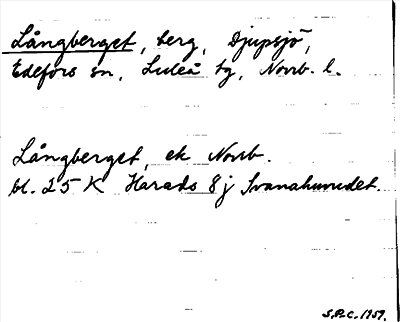 Långberget, berg, Djupsjö,
Edefors sn, Luleå tg, Norrb. l.
Långberget, ek Norrb.
bl. 25 K Harads 8 j Svanahuvudet.
S.P-C. 1959.